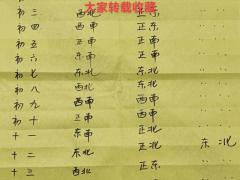 大家转载收藏
初三 西北 正东
初四 西南 正东
初五 正南 正南
初六 东南 正南
初七 东北 东北
初八 西北 东北
初九 西南 正西
初十 正南 正西
十一 东南 正北
十二 东北 正北 东北
十三 西北 正东